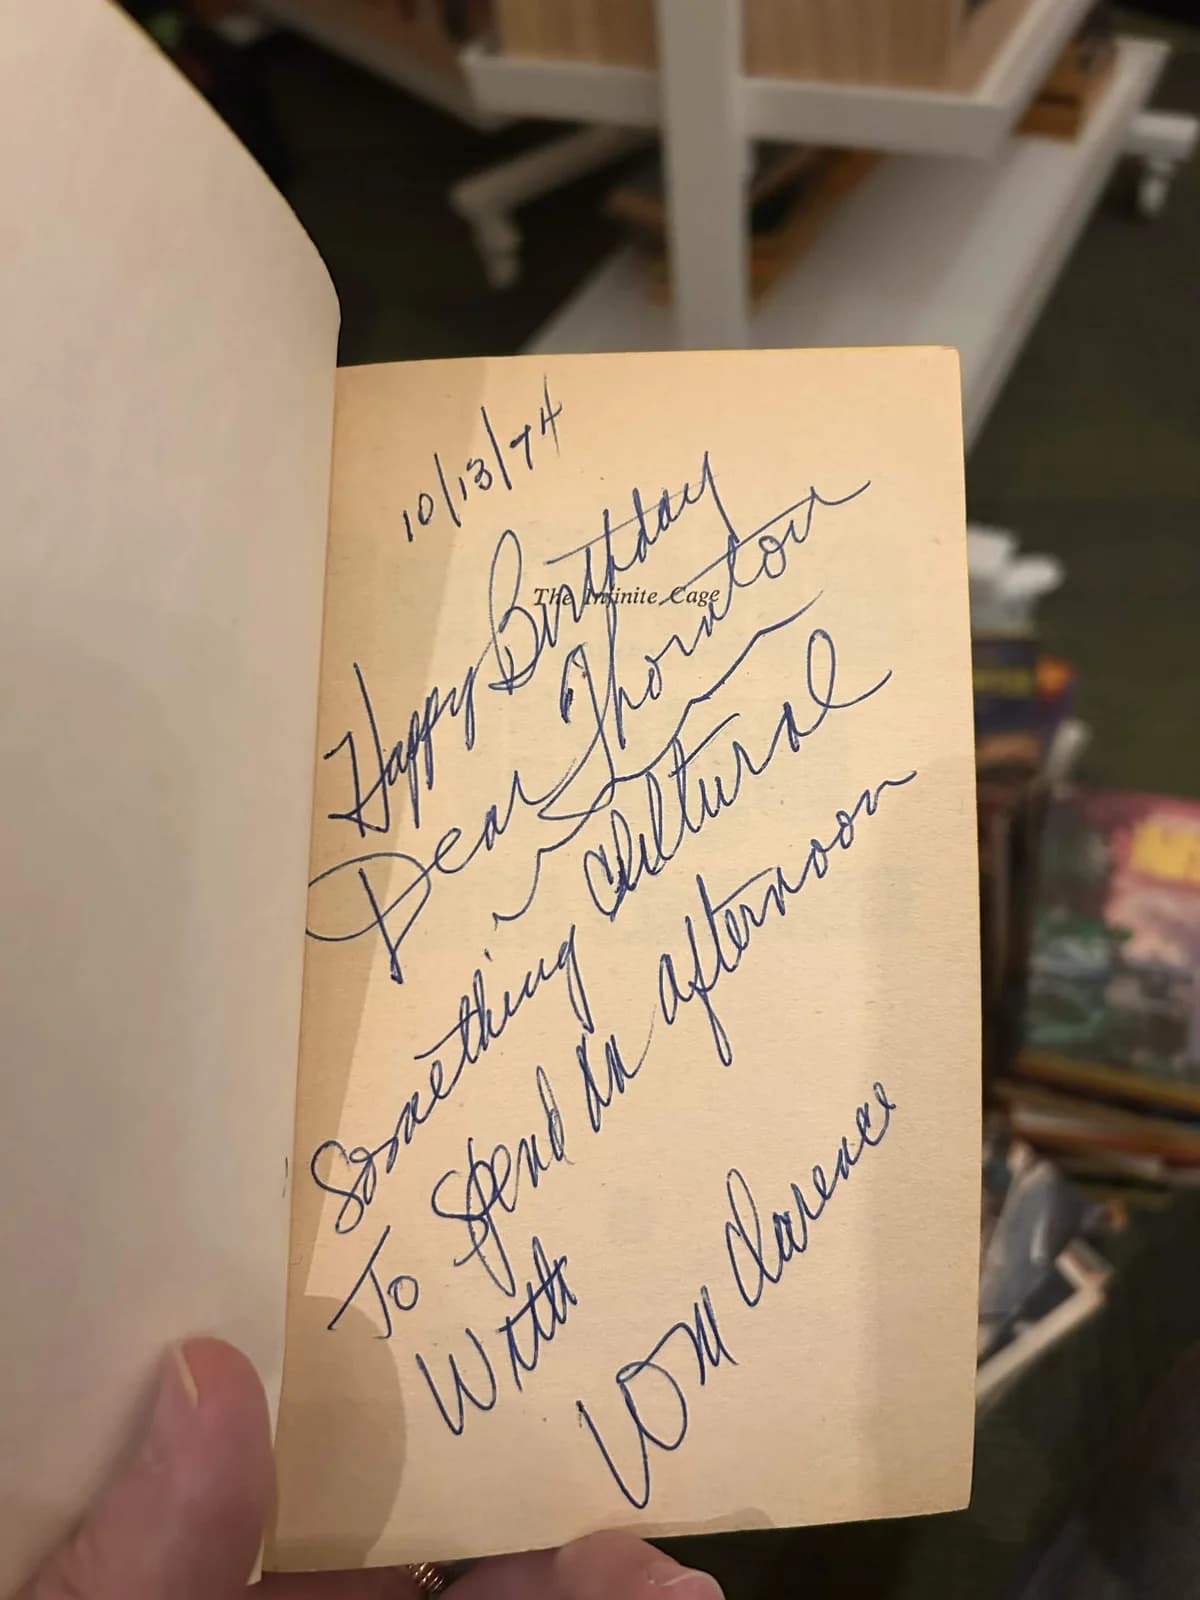 10/13/74
Happy Birthday
The Infinite Cage
Dear Thornton
Something Cultural
To Spend An afternoon
With
Wm Clarence